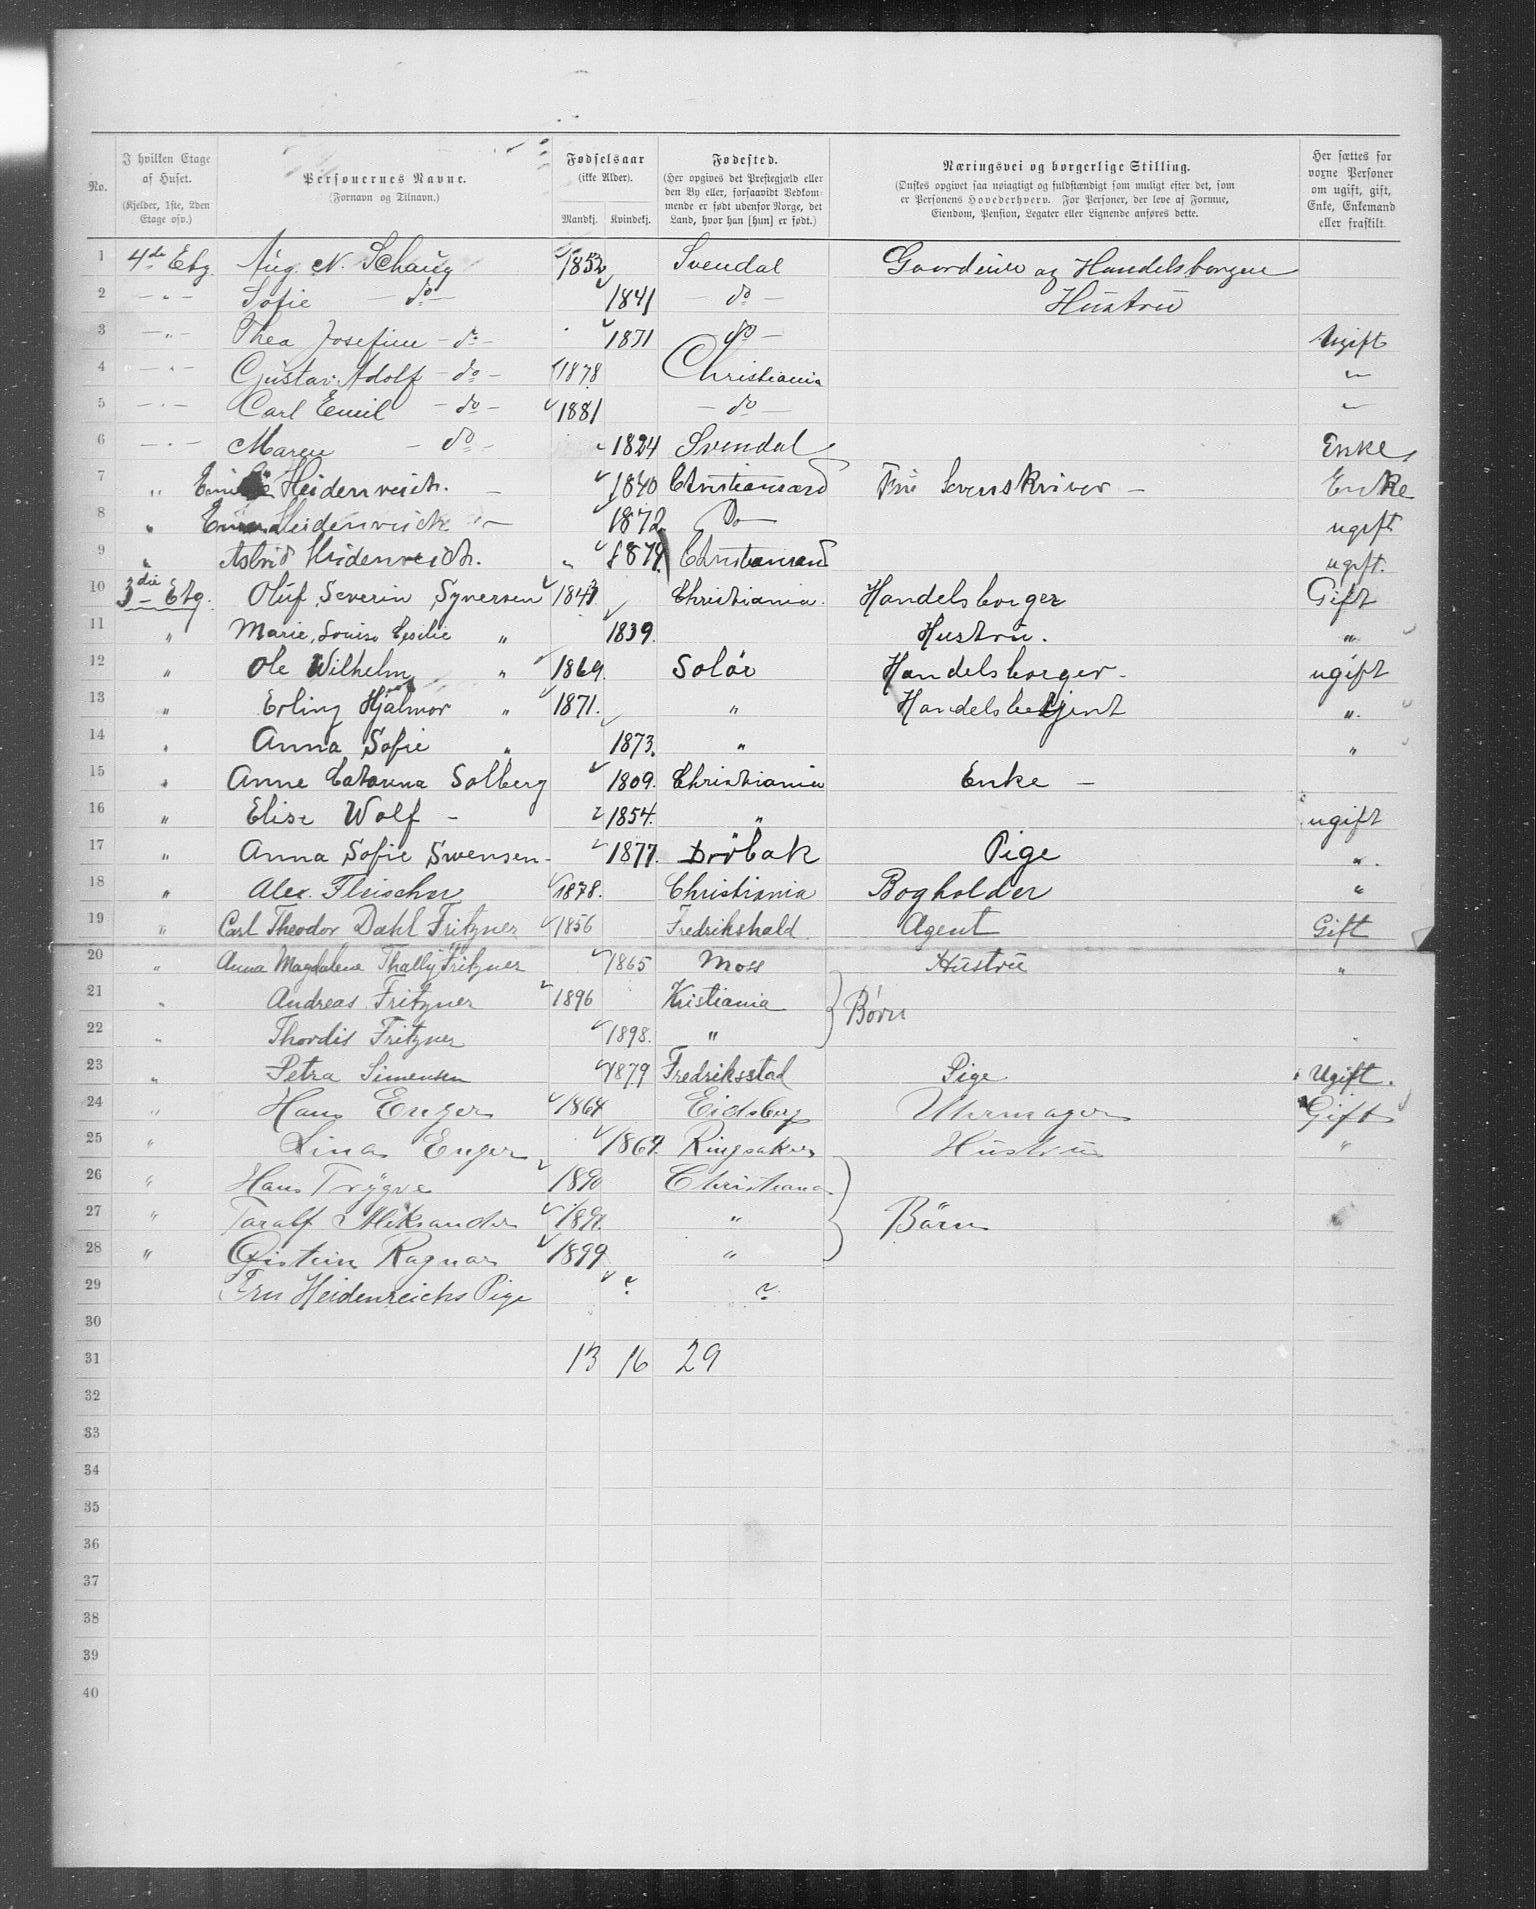 No. | I hvilken Etage af Huset. (Kjelder, 1ste, 2den Etage osv.) | Personernes Navne. (Fornavn og Tilnavn.) | Fødselsaar (ikke Alder). Mandkj. Kvindekj. | Fødested. (Her opgives det Prestegjæld eller den By eller, forsaavidt Vedkommende er født udenfor Norge, det Land, hvor han [hun] er født.) | Næringsvei og borgerlige Stilling. (Ønskes opgivet saa nøiagtigt og fuldstændigt som muligt efter det, som er Personens Hovederhverv. For Personer, der leve af Formue, Eiendom, Pension, Legater eller Lignende anføres dette. | Her sættes for voxne Personer om ugift, gift, Enke, Enkemand eller fraskilt.
1 4de Etg. Aug. N. Schaug 1852 Svendal Gaardeier og Handelsborger
2 — " — Sofie — do — 1841 — do — Hustru
3 — " — Thea Josefine — do — 1871 do — Ugift
4 — " — Gustav Adolf — do — 1878 Christiania "
5 — " — Carl Emil — do — 1881 — do — "
6 — " — Maren — do — 1824 Svendal Enke
7 " Emilie Heidenreich. — 1840 Christiansand Fru Sorenskriver — Enke
8 " Emma Heidenreich — 1872 Do — ugift
9 " Astrid Heidenreich. " 1879 Christiansand ugift.
10 3die Etg. Oluf Severin Syversen 1843 Christiania. Handelsborger Gift
11 " Marie Louise Cesilie " 1839. Hustru. "
12 " Ole Wilhelm " 1869. Solör Handelsborger. ugift
13 " Erling Hjalmar " 1871. " Handelsbetjent "
14 " Anna Sofie " 1873. " "
15 " Anne Catarina Solberg 1809. Christiania Enke —
16 " Elise Wolf — 1854. " ugift
17 " Anna Sofie Swensen — 1877. Dröbak Pige "
18 " Alex. Fleischer 1878. Christiania Bogholder "
19 " Carl Theodor Dahl Fritzner 1856 Fredrikshald Agent Gift
20 " Anna Magdalene Thally Fritzner 1865 Moss Hustru "
21 " Andreas Fritzner 1896 Kristiania } Børn
22 " Thordis Fritzner 1898. "
23 " Petra Simensen 1879 Fredriksstad Pige Ugift.
24 " Hans Enger 1864 Eidsberg Uhrmager Gift
25 " Lina Enger 1869. Ringsaker Hustru "
26 " Hans Trygve 1890 Christiania
27 " Taralf Aleksander 1891. " } Börn
28 " Øistein Ragnar 1899 "
29 Fru Heidenreichs Pige ? ?
30
31 13 16 29
32
33
34
35
36
37
38
39
40